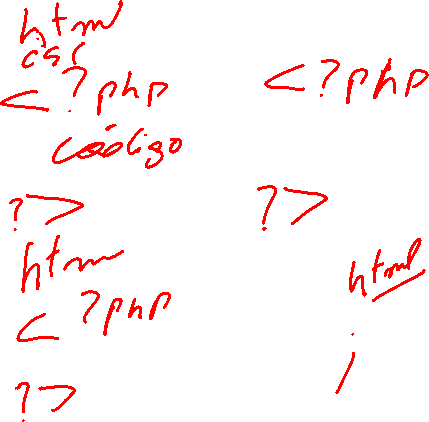 html
css
<?php
código
?>
html
<?php
?>
<?php
?>
html
;